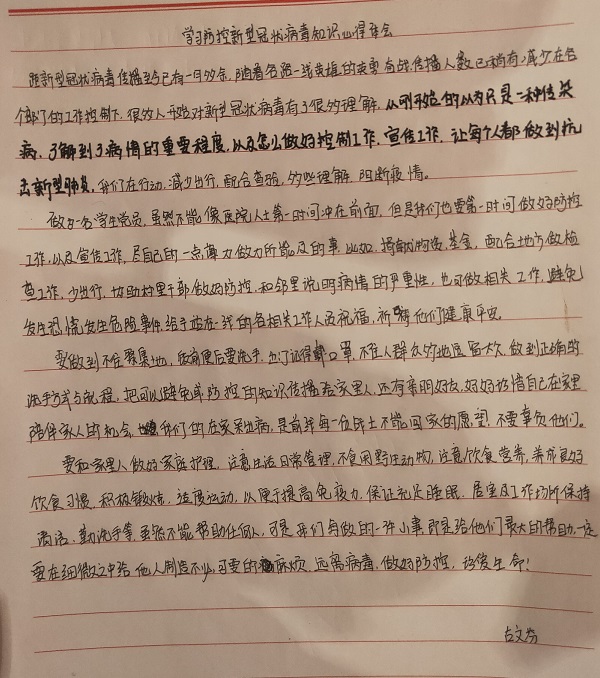 学习防控新型冠状病毒知识心得体会
距新型冠状病毒传播至今已有一月多余，随着各路一线英雄的英勇奋战传播人数已稍有减少在各
个部门的工作控制下，很多人开始对新型冠状病毒有了很多理解，从刚开始的以为只是一种传染
病，了解到了病情的重要程度，以及怎么做好控制工作，宣传工作，让每个人都做到抗
击新型肺炎，我们在行动，减少出行，配合查验，多些理解，阻断疫情。
做为一名学生党员，虽然不能像医院人士第一时间冲在前面，但是我们也要第一时间做好防控
工作，以及宣传工作，尽自己的一点薄力做力所能及的事，比如，捐献物资，基金，配合地方做检
查工作，少出行，协助村里干部做好防控，和邻里说明病情的严重性，也可做相关工作，避免
发生恐慌发生危险事件，给予站在一线的各相关工作人员祝福，祈祷他们健康平安。
要做到不在聚集地，饭前便后要洗手，出门记得戴口罩，不在人群多的地逗留太久，做到正确的
洗手方式与流程，把可以避免或防控的知识传播给家里人，还有亲朋好友，好好珍惜自己在家里
陪伴家人的机会，我们的在家是前线每一位战士不能回家的愿望，不要辜负他们。
要和家里人做好家庭护理，注意生活日常管理，不食用野生动物，注意饮食营养，养成良好
饮食习惯，积极锻炼，适度运动，以便于提高免疫力，保证充足睡眠，居室及工作场所保持
清洁，勤洗手等，虽然不能帮助任何人，可是我们每做的一件小事即是给他们最大的帮助，一定
要在细微之中给他人制造不必要的麻烦，远离病毒，做好防控，珍爱生命！
占文芬